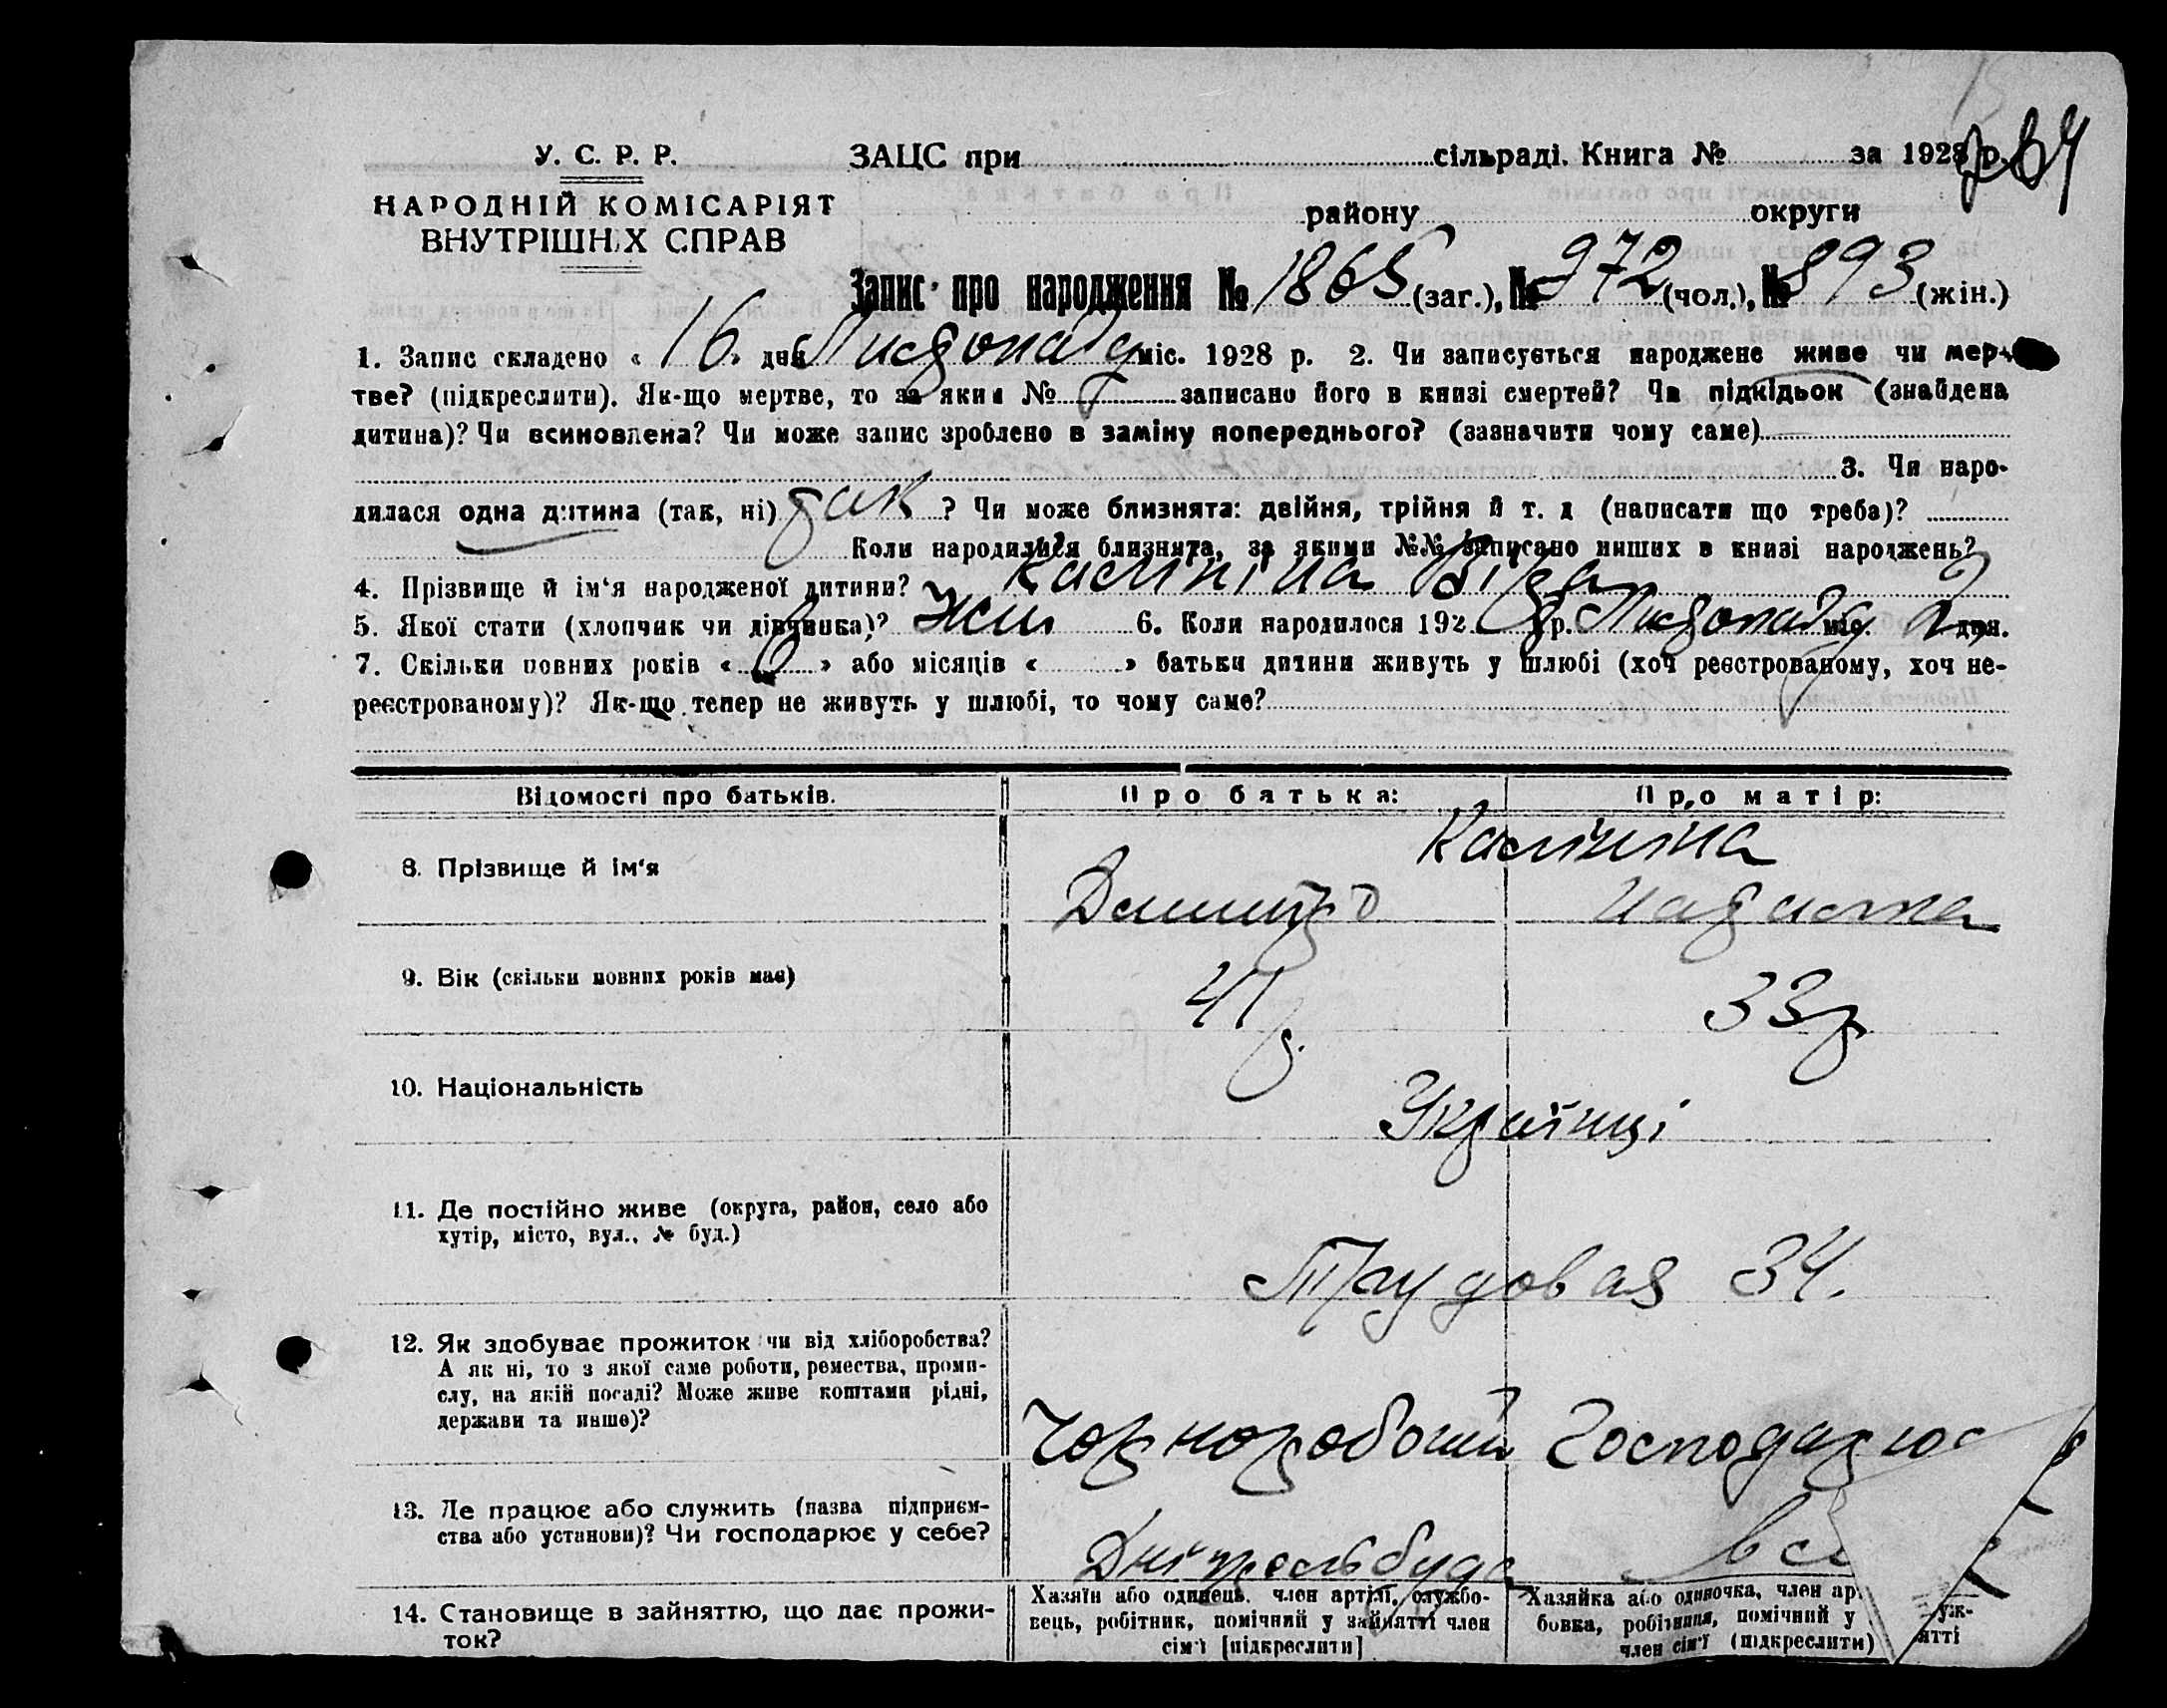 У. С. Р. Р.
ЗАЦС при сільраді. Книга № за 1928 р.
НАРОДНІЙ КОМІСАРІЯТ
ВНУТРІШНІХ СПРАВ
району округи
Запис про народження № 1865 (заг.), № 972 (чол.), № 893 (жін.)
1. Запис складено « 16 » дня Листопаду міс. 1928 р. 2. Чи записується народжене живе чи мер-
тве? (підкреслити). Як-що мертве, то за яким № записано його в книзі смертей? Чи підкідьок (знайдена
дитина)? Чи всиновлена? Чи може запис зроблено в заміну попереднього? (зазначити чому саме)
3. Чи наро-
дилася одна дитина (так, ні) так ? Чи може близнята: двійня, трійня й т. д (написати що треба)?
Коли народилися близнята, за якими №№ записано инших в книзі народжень?
4. Прізвище й ім‘я народженої дитини? Калініна Віра
5. Якої стати (хлопчик чи дівчинка)? жін. 6. Коли народилося 1928 р. Листопаду міс. 2 дня.
7. Скільки повних років « 6 » або місяців « » батьки дитини живуть у шлюбі (хоч реєстрованому, хоч не-
реєстрованому)? Як-що тепер не живуть у шлюбі, то чому саме?
Відомості про батьків. Про батька: Про матір:
Калініна
8. Прізвище й ім‘я Дмитро
9. Вік (скільки повних років має) 41 р. 33 р
10. Національність Українці
11. Де постійно живе (округа, район, село або
хутір, місто, вул., № буд.)
Трудовая 34.
12. Як здобуває прожиток чи від хліборобства?
А як ні, то з якої саме роботи, ремества, проми-
слу, на якій посаді? Може живе коштами рідні,
держави та инше)?
Чорноробочий Господарює
13. Де працює або служить (назва підприєм-
ства або установи)? Чи господарює у себе?
Дніпрельбуд
14. Становище в зайняттю, що дає прожи-
ток?
Хазяїн або одинець, член артілі, службо-
вець, робітник, помічний у зайнятті член
сім‘ї [підкреслити]
Хазяйка або одиночка, член ар
бовка, робітниця, помічний у
член сім‘ї (підкреслити)
уж-
ятті